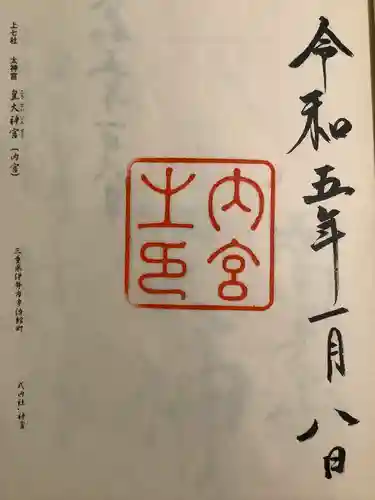 令和五年一月八日
内宮
之印
上七社 太神宮 皇大神宮(内宮) 三重県伊勢市宇治館町 式内社・神宮